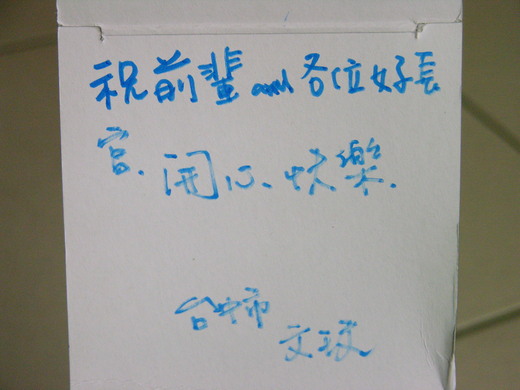 祝前輩and各位好長
官、開心、快樂.
台中市
文